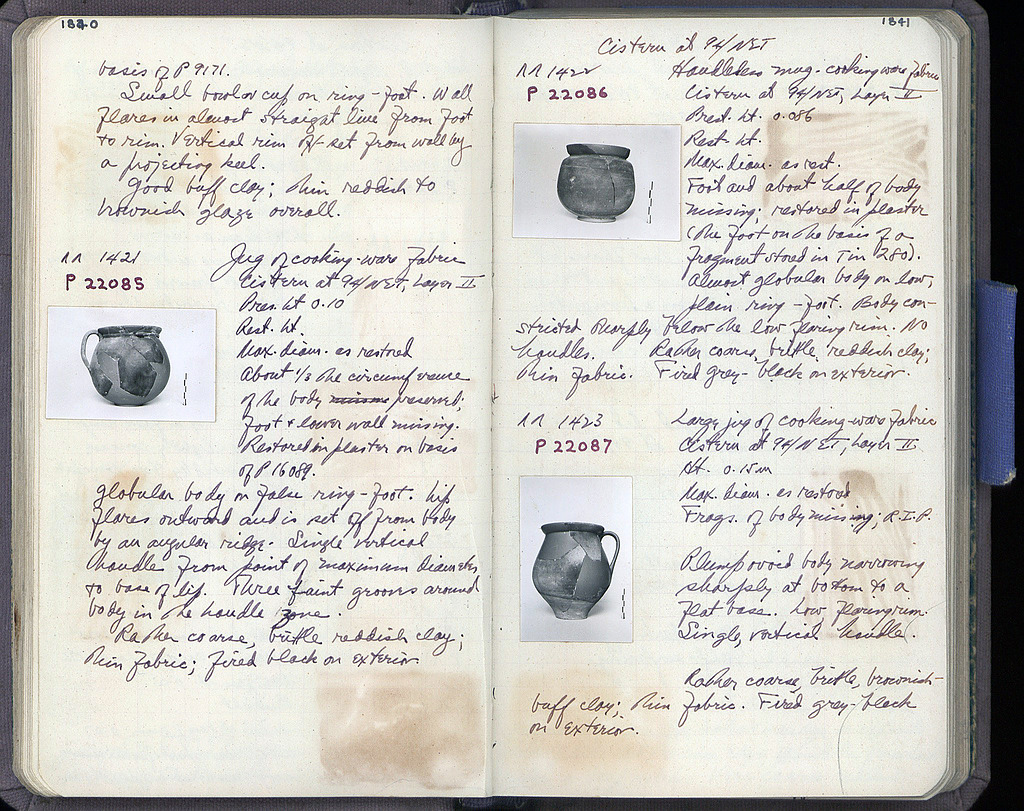 1840
basis of P 9171.
Small bowl or cup on ring-foot. Wall
flares in almost straight line from foot
to rim. Vertical rim off-set from wall by
a projecting keel.
Good buff clay; thin reddish to
brownish glaze overall.
ΛΛ 1421
P 22085
Jug of cooking-ware fabric
Cistern at 94/NET, Layer II
Pres. ht 0.10
Rest. ht.
Max. diam. as restored
About 1/3 the circumference
of the body missing preserved;
foot + lower wall missing.
Restored in plaster on basis
of P 16089.
globular body on false ring-foot. Lip
flares outward and is set off from body
by an angular ridge. Single vertical
handle from point of maximum diameter
to base of lip. Three faint grooves around
body in the handle zone.
Rather coarse, brittle reddish clay;
thin fabric; fired black on exterior
1841
Cistern at 94/NET
ΛΛ 1422
P 22086
Handleless mug. cooking ware fabric
Cistern at 94/NET, Layer II
Pres. ht. 0.086
Rest. ht.
Max. diam. as rest.
Foot and about half of body
missing; restored in plaster
(the foot on the basis of a
fragment stored in Tin 280).
Almost globular body on low,
plain ring-foot. Body con-
stricted sharply below the low flaring rim. No
handles. Rather coarse, brittle, reddish clay;
thin fabric. Fired grey-black on exterior.
ΛΛ 1423
P 22087
Large jug of cooking-ware fabric
Cistern at 94/NET, Layer II
Ht. 0.15m
Max. diam. as restored
Frags. of body missing; R.I.P.
Plump ovoid body narrowing
sharply at bottom to a
flat base. Low flaring rim.
Single, vertical handle.
Rather coarse, brittle, brownish-
buff clay; thin fabric. Fired grey-black
on exterior.